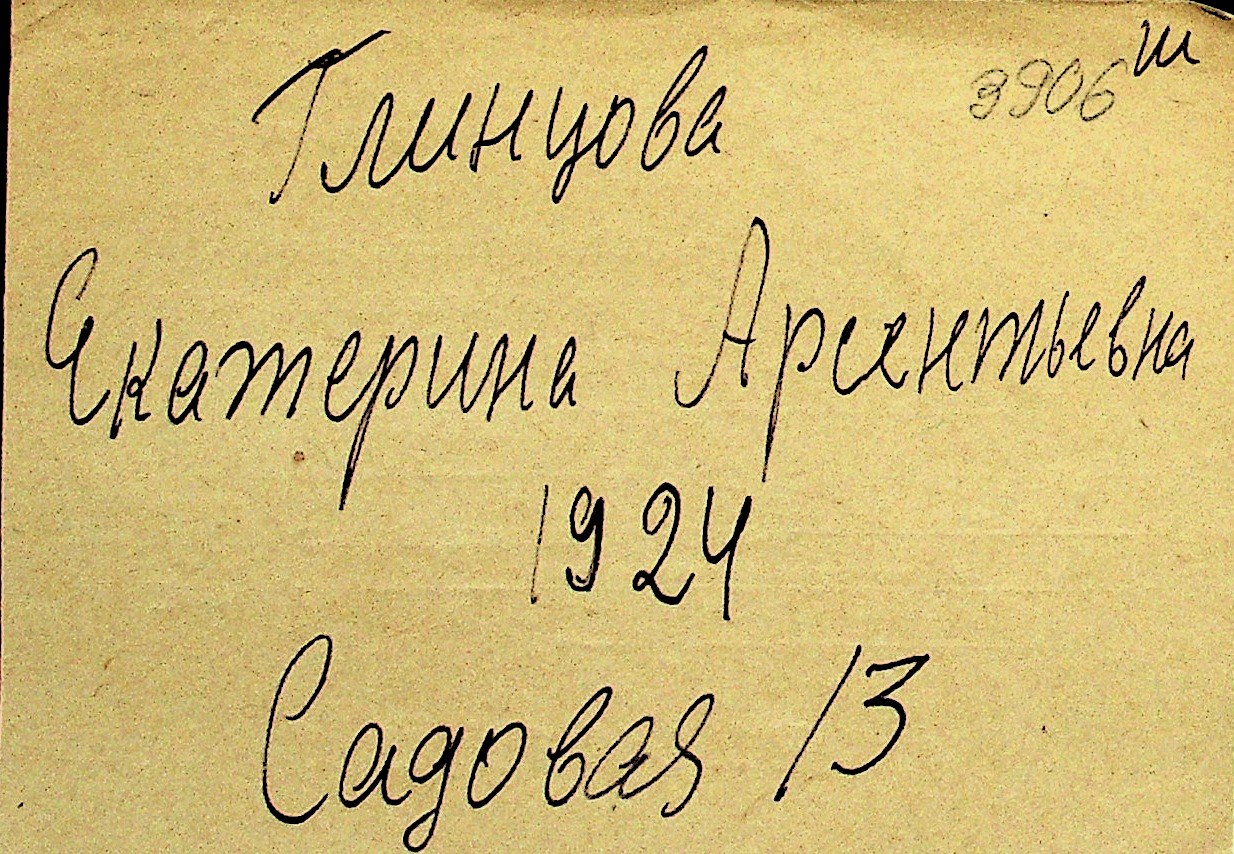 3906 ш
Глинцова
Екатерина Арсентьевна
1924
Садовая 13